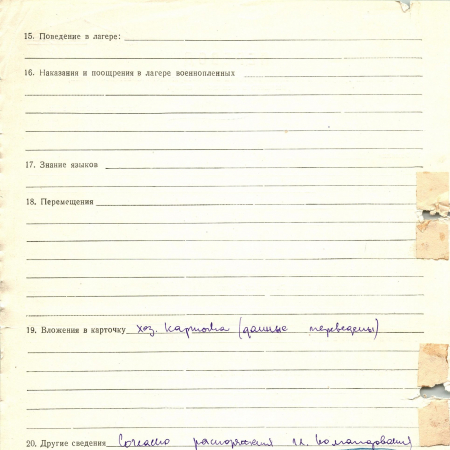 15. Поведение в лагере:
16. Наказания и поощрения в лагере военнопленных
17. Знание языков
18. Перемещения
19. Вложения в карточку хоз. карточка (данные переведены)
20. Другие сведения Согласно распоряжения гл. командования